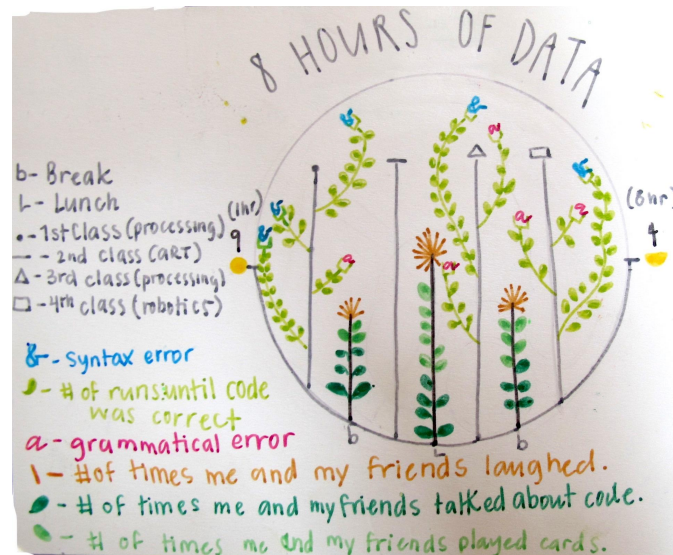 8 HOURS OF DATA
b- Break
L- Lunch
•- 1st Class (processing)
— - 2nd class (ART)
△ - 3rd class (processing)
□ - 4th class (robotics)
(1hr)
9
(8hr)
4
&
&
&
&
&
a
a
a
a
a
b
L
b
&- syntax error
- # of runs until code
was correct
a - grammatical error
- # of times me and my friends laughed.
- # of times me and my friends talked about code.
- # of times me and my friends played cards.